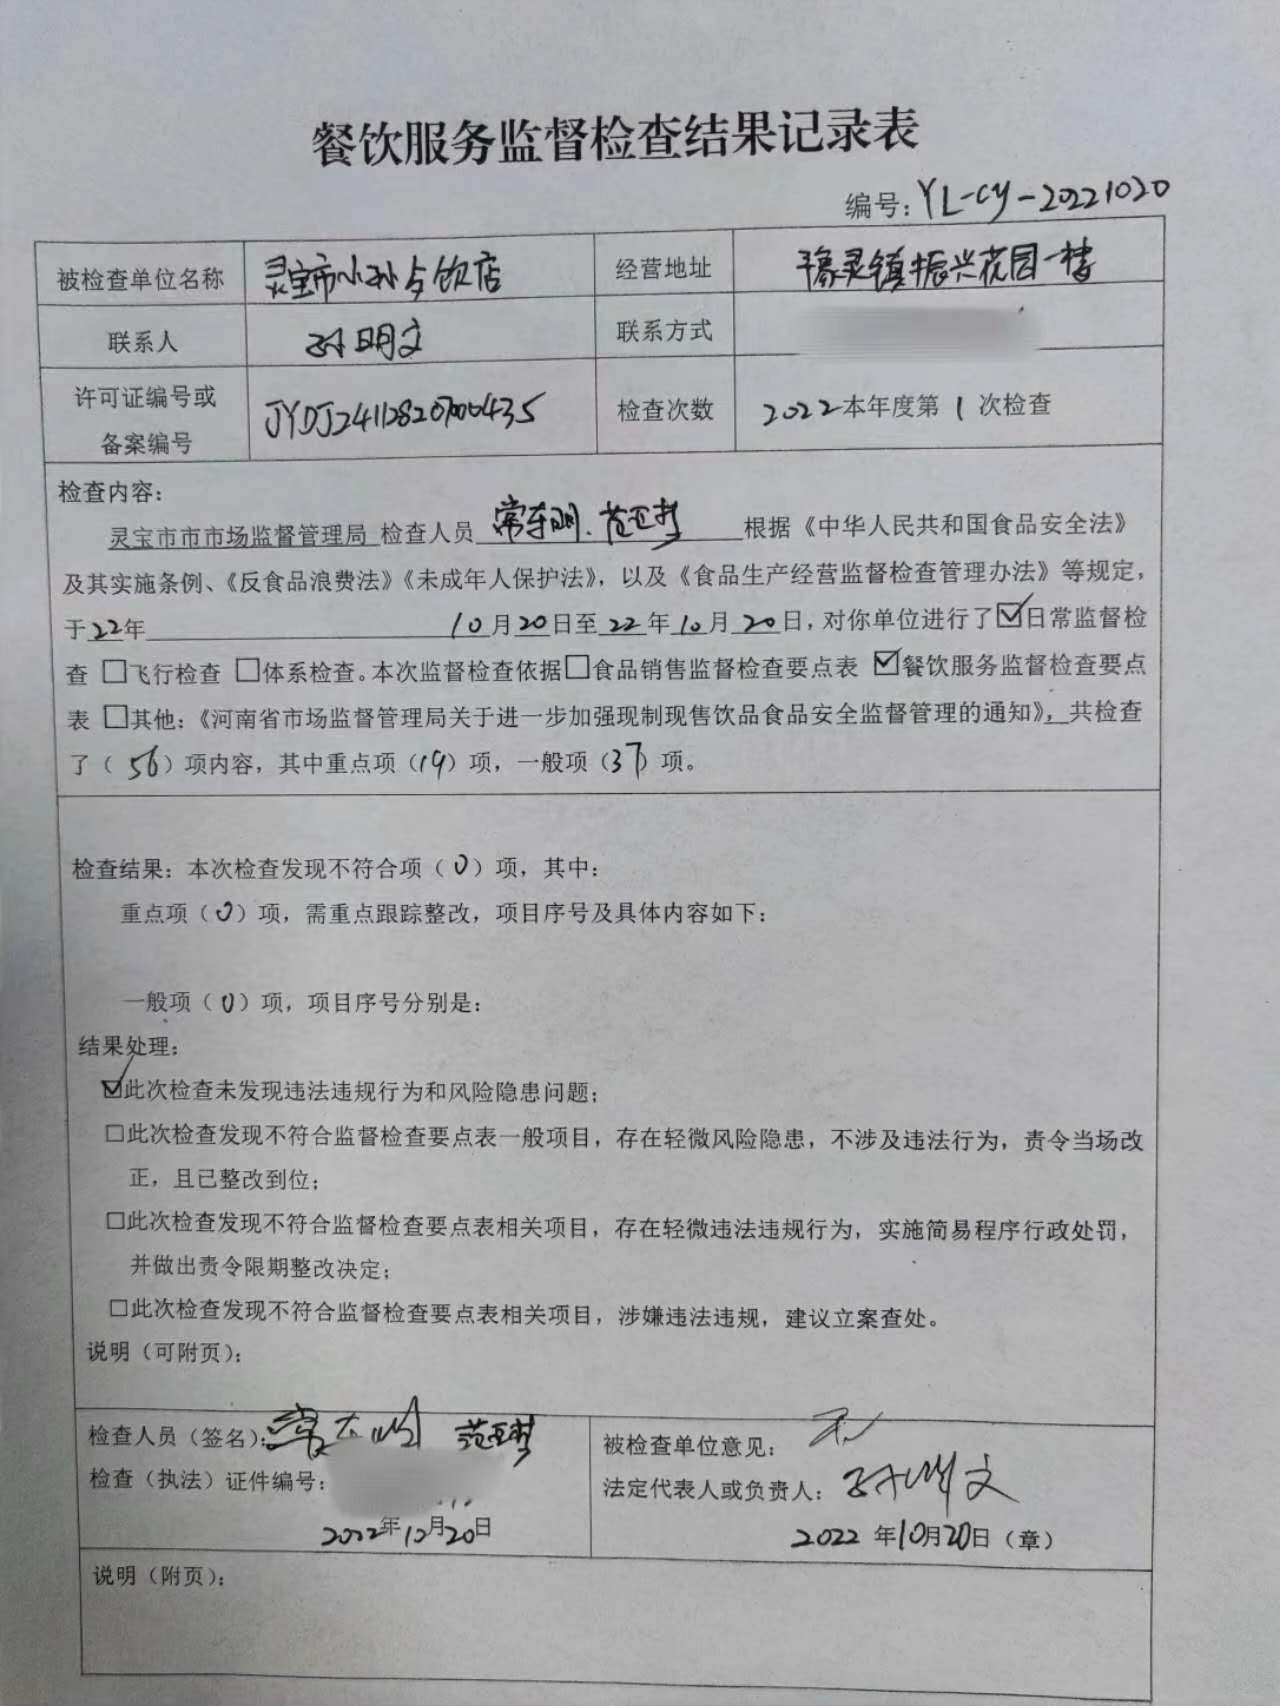 餐饮服务监督检查结果记录表
编号：YL-CY-20221020
被检查单位名称 灵宝市小孙饮店 经营地址 豫灵镇振兴花园一楼
联系人 孙明文 联系方式
许可证编号或备案编号 JYDJ24112820700435 检查次数 2022本年度第1次检查
检查内容：
灵宝市市市场监督管理局 检查人员 常 范亚 根据《中华人民共和国食品安全法》
及其实施条例、《反食品浪费法》《未成年人保护法》，以及《食品生产经营监督检查管理办法》等规定，
于22年 10月20日至22年10月20日，对你单位进行了☑日常监督检
查 □飞行检查 □体系检查。本次监督检查依据□食品销售监督检查要点表 ☑餐饮服务监督检查要点
表 □其他：《河南省市场监督管理局关于进一步加强现制现售饮品食品安全监督管理的通知》，共检查
了（56）项内容，其中重点项（19）项，一般项（37）项。
检查结果：本次检查发现不符合项（0）项，其中：
重点项（0）项，需重点跟踪整改，项目序号及具体内容如下：
一般项（0）项，项目序号分别是：
结果处理：
☑此次检查未发现违法违规行为和风险隐患问题；
□此次检查发现不符合监督检查要点表一般项目，存在轻微风险隐患，不涉及违法行为，责令当场改
正，且已整改到位；
□此次检查发现不符合监督检查要点表相关项目，存在轻微违法违规行为，实施简易程序行政处罚，
并做出责令限期整改决定；
□此次检查发现不符合监督检查要点表相关项目，涉嫌违法违规，建议立案查处。
说明（可附页）：
检查人员（签名）：常 范亚
检查（执法）证件编号：
2022年10月20日
被检查单位意见：无
法定代表人或负责人：孙明文
2022年10月20日（章）
说明（附页）：